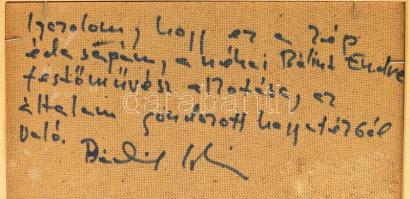 Igazolom, hogy ez a kép
édesapám, a néhai Bálint Endre
festőművész alkotása, az
általam gondozott hagyatékból
való. Bálint István